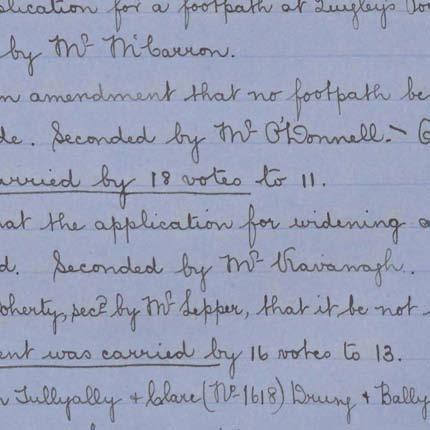 plication for a footpath at Quigley's
by Mr McCarron.
n amendment that no footpath be
de. Seconded by Mr O'Donnell.-
arried by 18 votes to 11.
hat the application for widening a
d. Seconded by Mr Kavanagh.
oherty, secd by Mr Lepper, that it be not
ent was carried by 16 votes to 13.
n Tullyally & Clare (No 1618) Drung & Bally